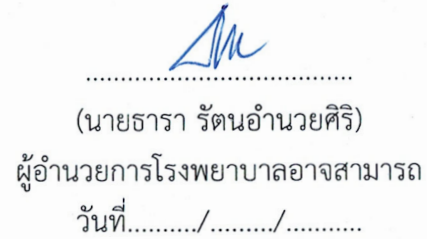 ....................................
(นายธารา รัตนอำนวยศิริ)
ผู้อำนวยการโรงพยาบาลอาจสามารถ
วันที่........../........./...........